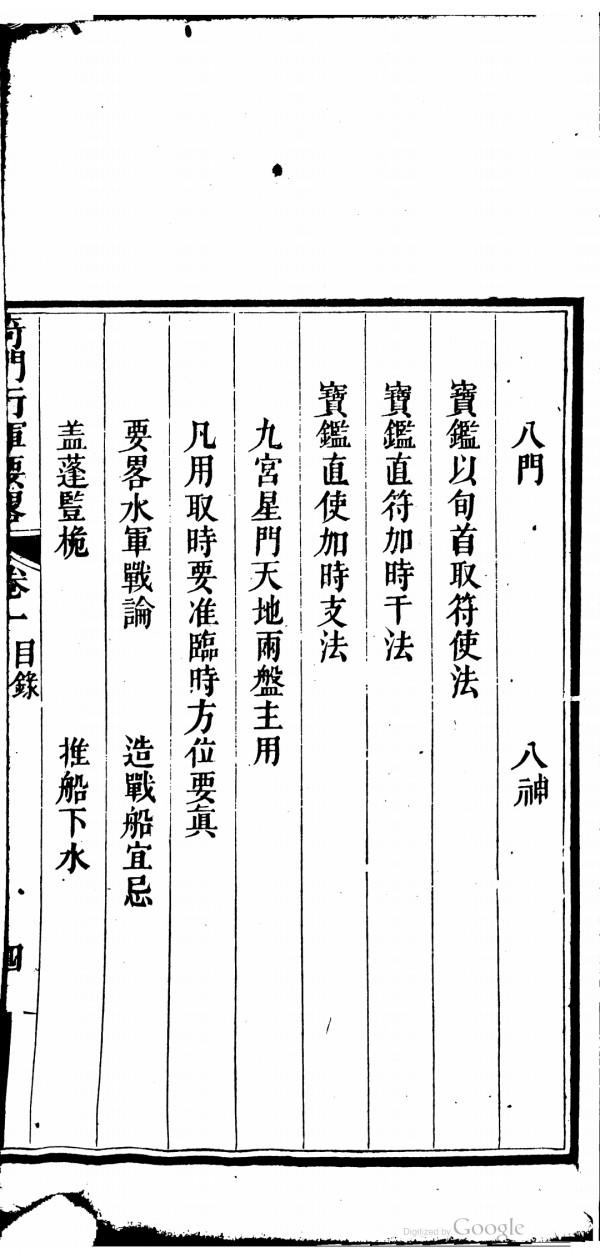 八門　八神
寶鑑以旬首取符使法
寶鑑直符加時干法
寶鑑直使加時支法
九宮星門天地兩盤主用
凡用取時要准臨時方位要眞
要畧水軍戰論　造戰船宜忌
盖蓬豎桅　推船下水
奇門行軍要畧　卷一　目錄　四
Digitized by Google